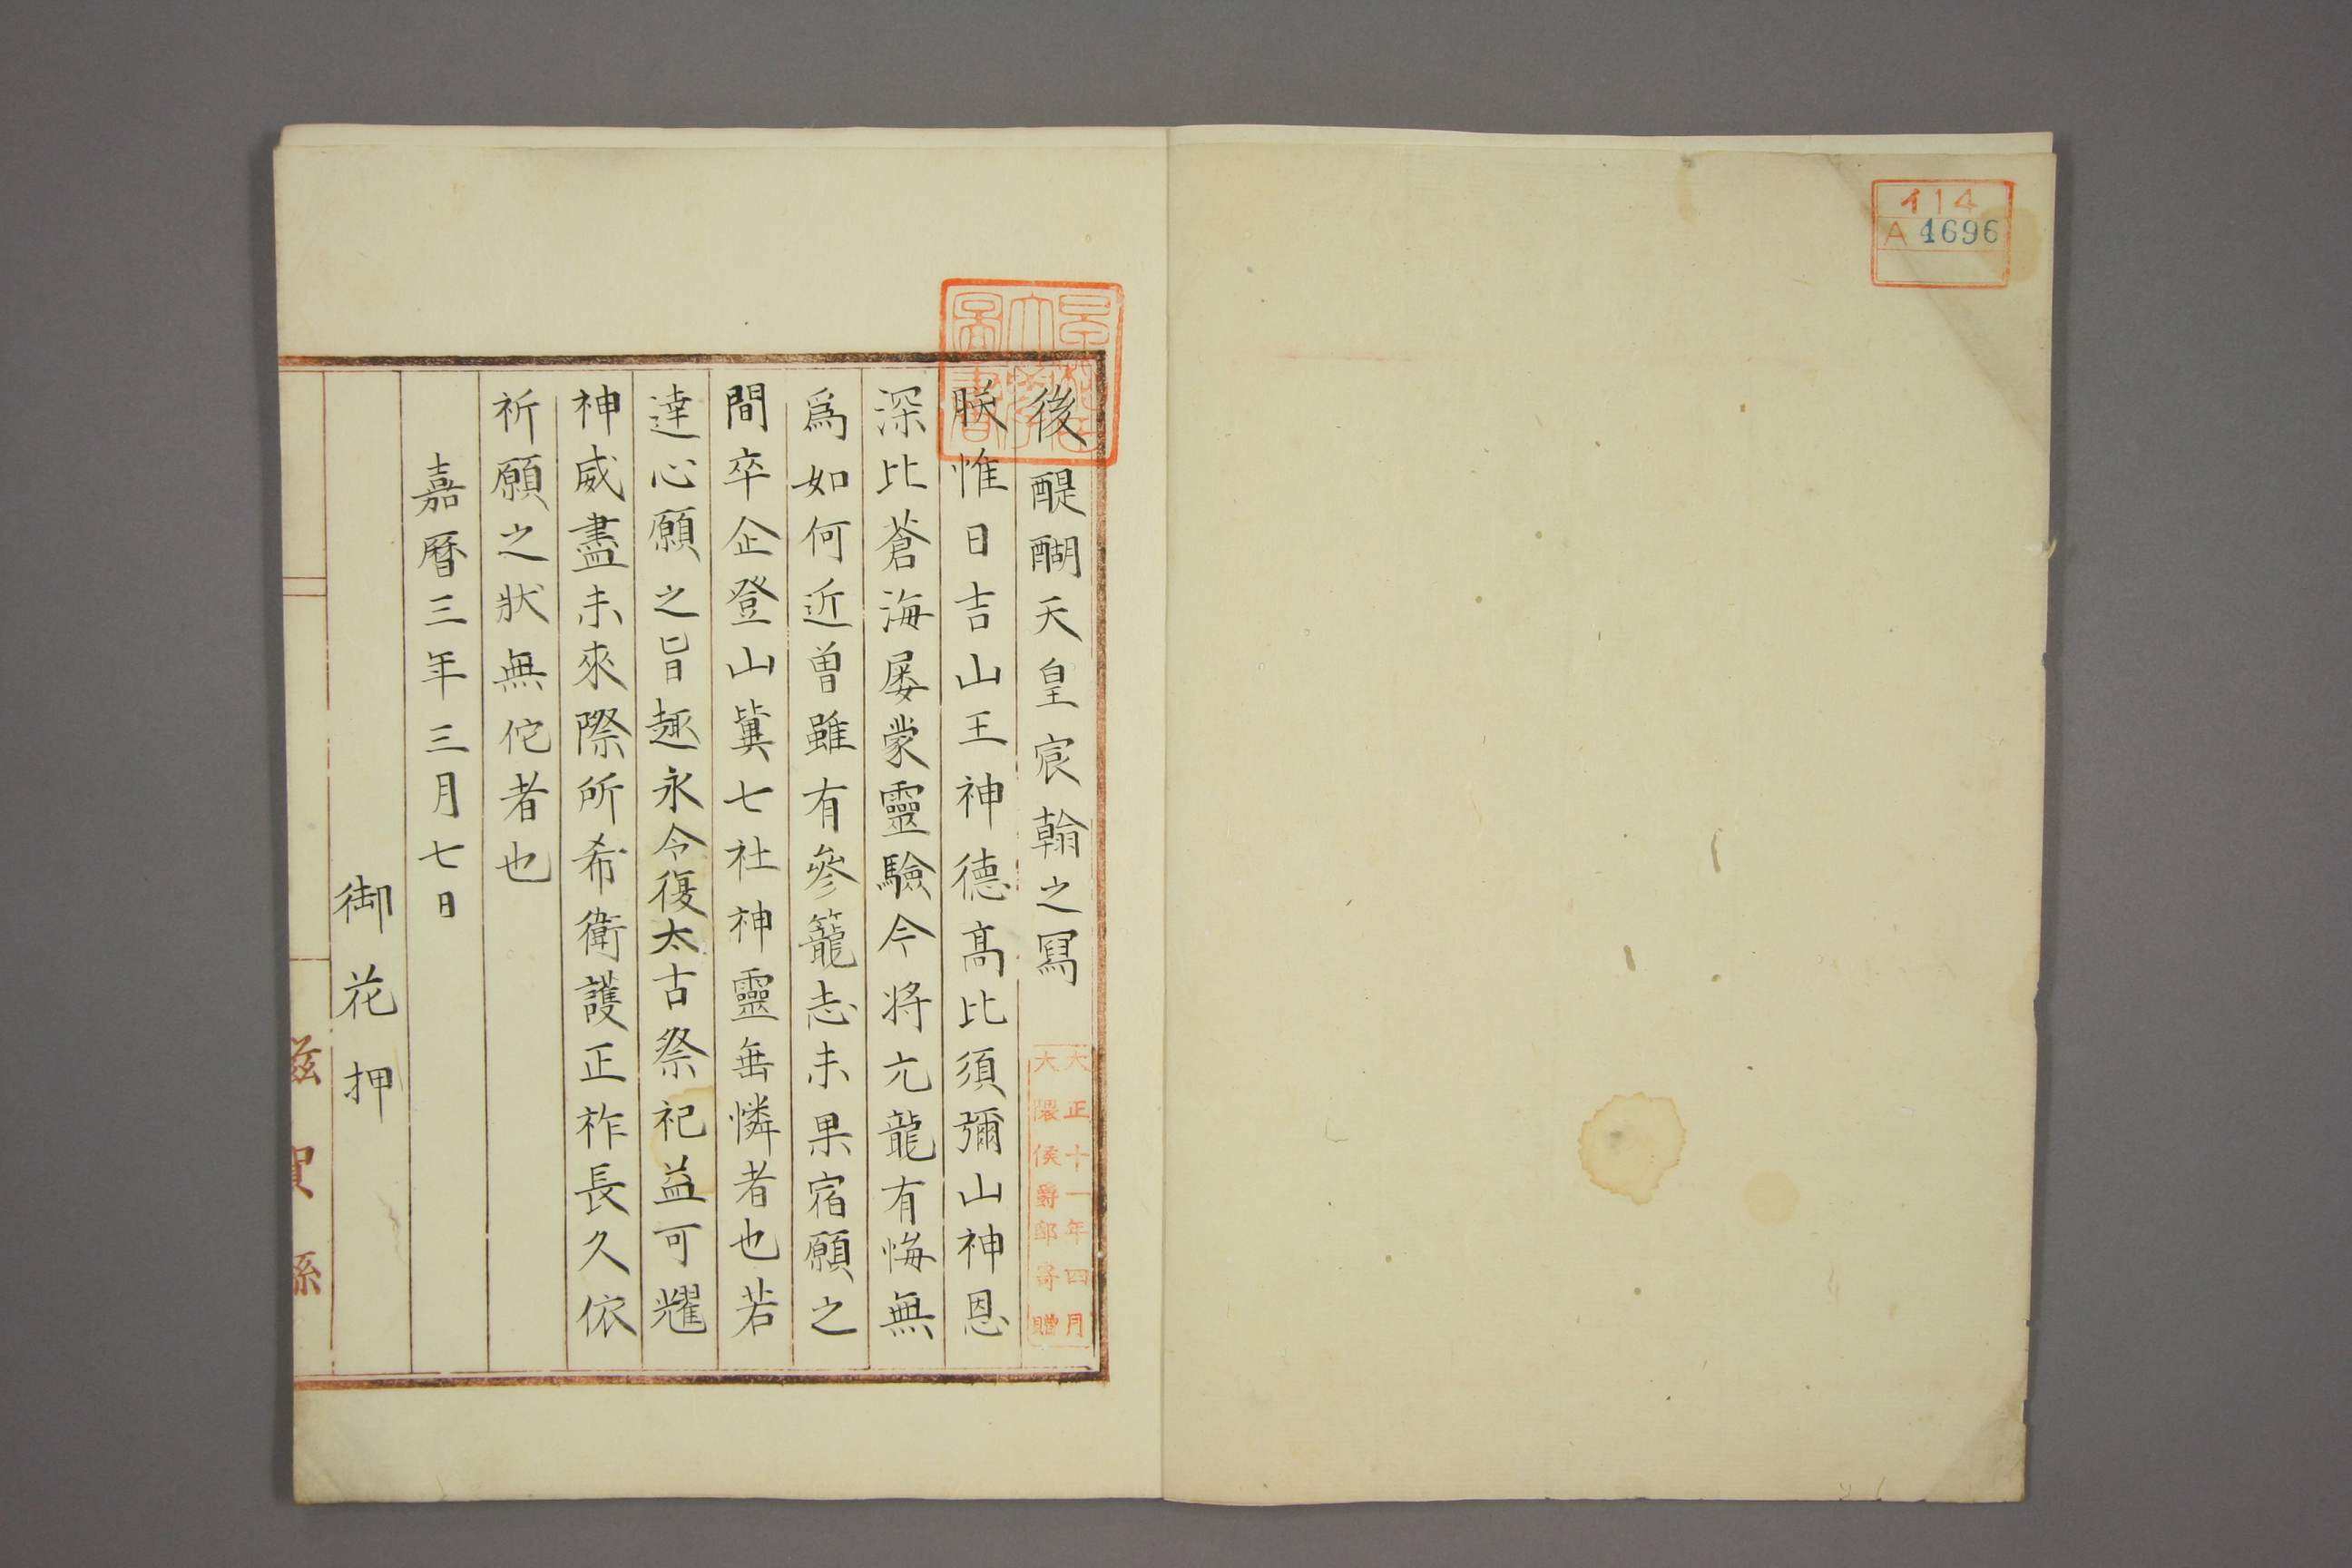 イ14
A 4696
早稲田大學圖書
後醍醐天皇宸翰之冩
大正十一年四月
大隈侯爵邸寄贈
朕惟日吉山王神德髙比須彌山神恩
深比蒼海屡蒙靈驗今将亢龍有悔無
爲如何近曽雖有參籠志未果宿願之
間卒企登山冀七社神靈垂憐者也若
達心願之旨趣永令復太古祭祀益可耀
神威盡未來際所希衛護正祚長久依
祈願之狀無佗者也
嘉暦三年三月七日
御花押
滋賀縣